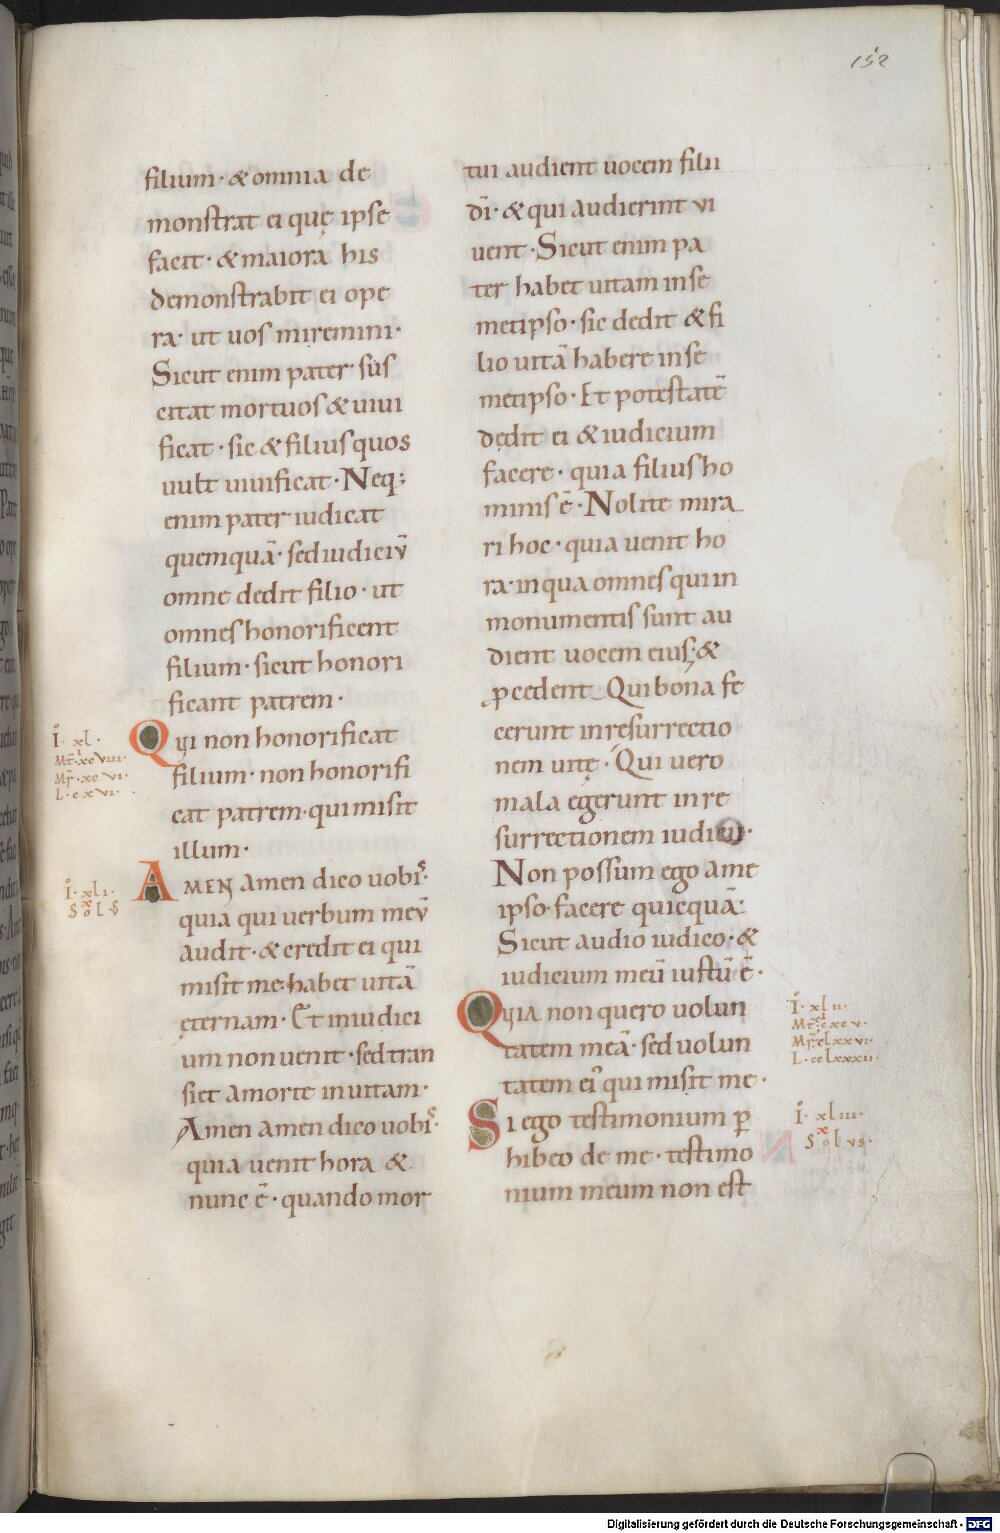 152
filium · & omnia de
monstrat ei quę ipse
facit · & maiora his
demonstrabit ei ope
ra · ut uos miremini ·
Sicut enim pater sus
citat mortuos & uiui
ficat · sic & filius quos
uult uiuificat · Neq;
enim pater iudicat
quemquā · sed iudiciū
omne dedit filio · ut
omnes honorificent
filium · sicut honori
ficant patrem ·
Qui non honorificat
filium · non honorifi
cat patrem · qui misit
illum ·
Amen amen dico uobis ·
quia qui uerbum meū
audit · & credit ei qui
misit me · habet uitā
ęternam · Et in iudici
um non uenit · sed tran
siet a morte in uitam ·
Amen amen dico uobis ·
quia uenit hora &
nunc ē · quando mor
I · xl ·
Mt · xcviii ·
Mr · xcvi ·
L · cxvi ·
I · xli ·
Solus
tui audient uocem filii
dī · & qui audierint ui
uent · Sicut enim pa
ter habet uitam in se
metipso · sic dedit & fi
lio uitā habere in se
metipso · Et potestatē
dedit ei & iudicium
facere · quia filius ho
minis ē · Nolite mira
ri hoc · quia uenit ho
ra · in qua omnes qui in
monumentis sunt au
dient uocem eius · &
ꝓcedent Qui bona fe
cerunt in resurrectio
nem uitę · Qui uero
mala egerunt in re
surrectionem iudicii ·
Non possum ego a me
ipso facere quicquā ·
Sicut audio iudico · &
iudicium meū iustū ē ·
Quia non quero uolun
tatem meā · sed uolun
tatem ei' qui misit me ·
Si ego testimonium ꝑ
hibeo de me · testimo
nium meum non est
I · xlii ·
Mt · ccxcv ·
Mr · clxxvi ·
L · cclxxxii ·
I · xliii ·
Solus ·
Digitalisierung gefördert durch die Deutsche Forschungsgemeinschaft - DFG